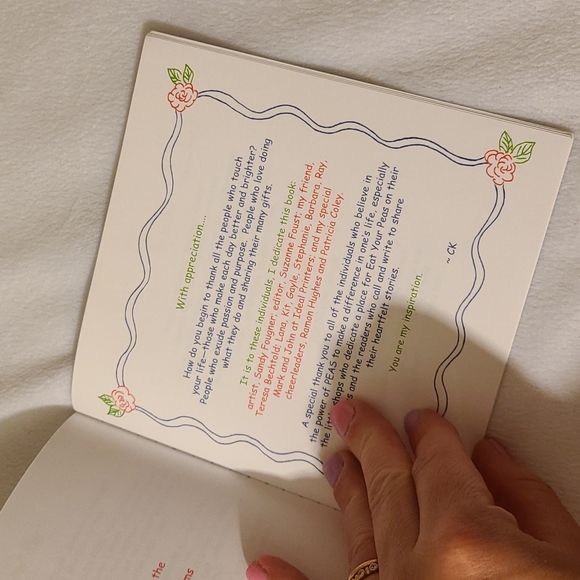 With appreciation....
How do you begin to thank all the people who touch
your life—those who make each day better and brighter?
People who exude passion and purpose. People who love doing
what they do and sharing their many gifts.
It is to these individuals, I dedicate this book:
artist, Sandy Fougner; editor, Suzanne Foust; my friend,
Teresa Bechtold; Lana, Kit, Gayle, Stephanie, Barbara, Ray,
Mark and John at Ideal Printers; and my special
cheerleaders, Ramon Hughes and Patricia Coley.
A special thank you to all of the individuals who believe in
the power of PEAS to make a difference in one's life, especially
the shops who dedicate a place for Eat Your Peas on their
and the readers who call and write to share
their heartfelt stories.
You are my inspiration.
~ CK
the
ms